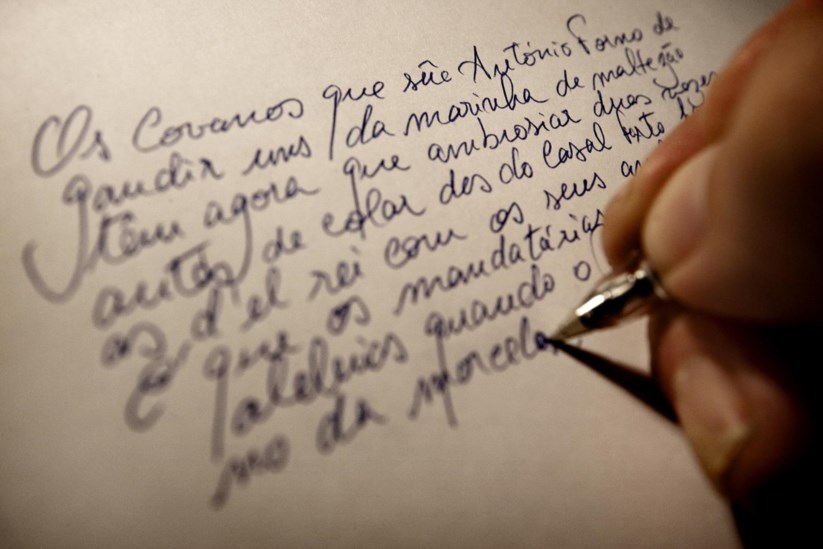 Os Covanos que são António Forno de
gaudir uns da marinha de maltezão
têm agora que ambrosiar duas vezes
antes de colar des do Casal
as d'el rei com os seus
E que os mandatários
quando o
mo da morcela